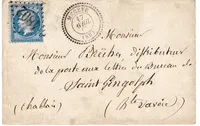 Monsieur Béchet, distributeur
de la poste aux lettres du Bureau de
Saint Gingolph
(Chablais)
(Hte Savoie)